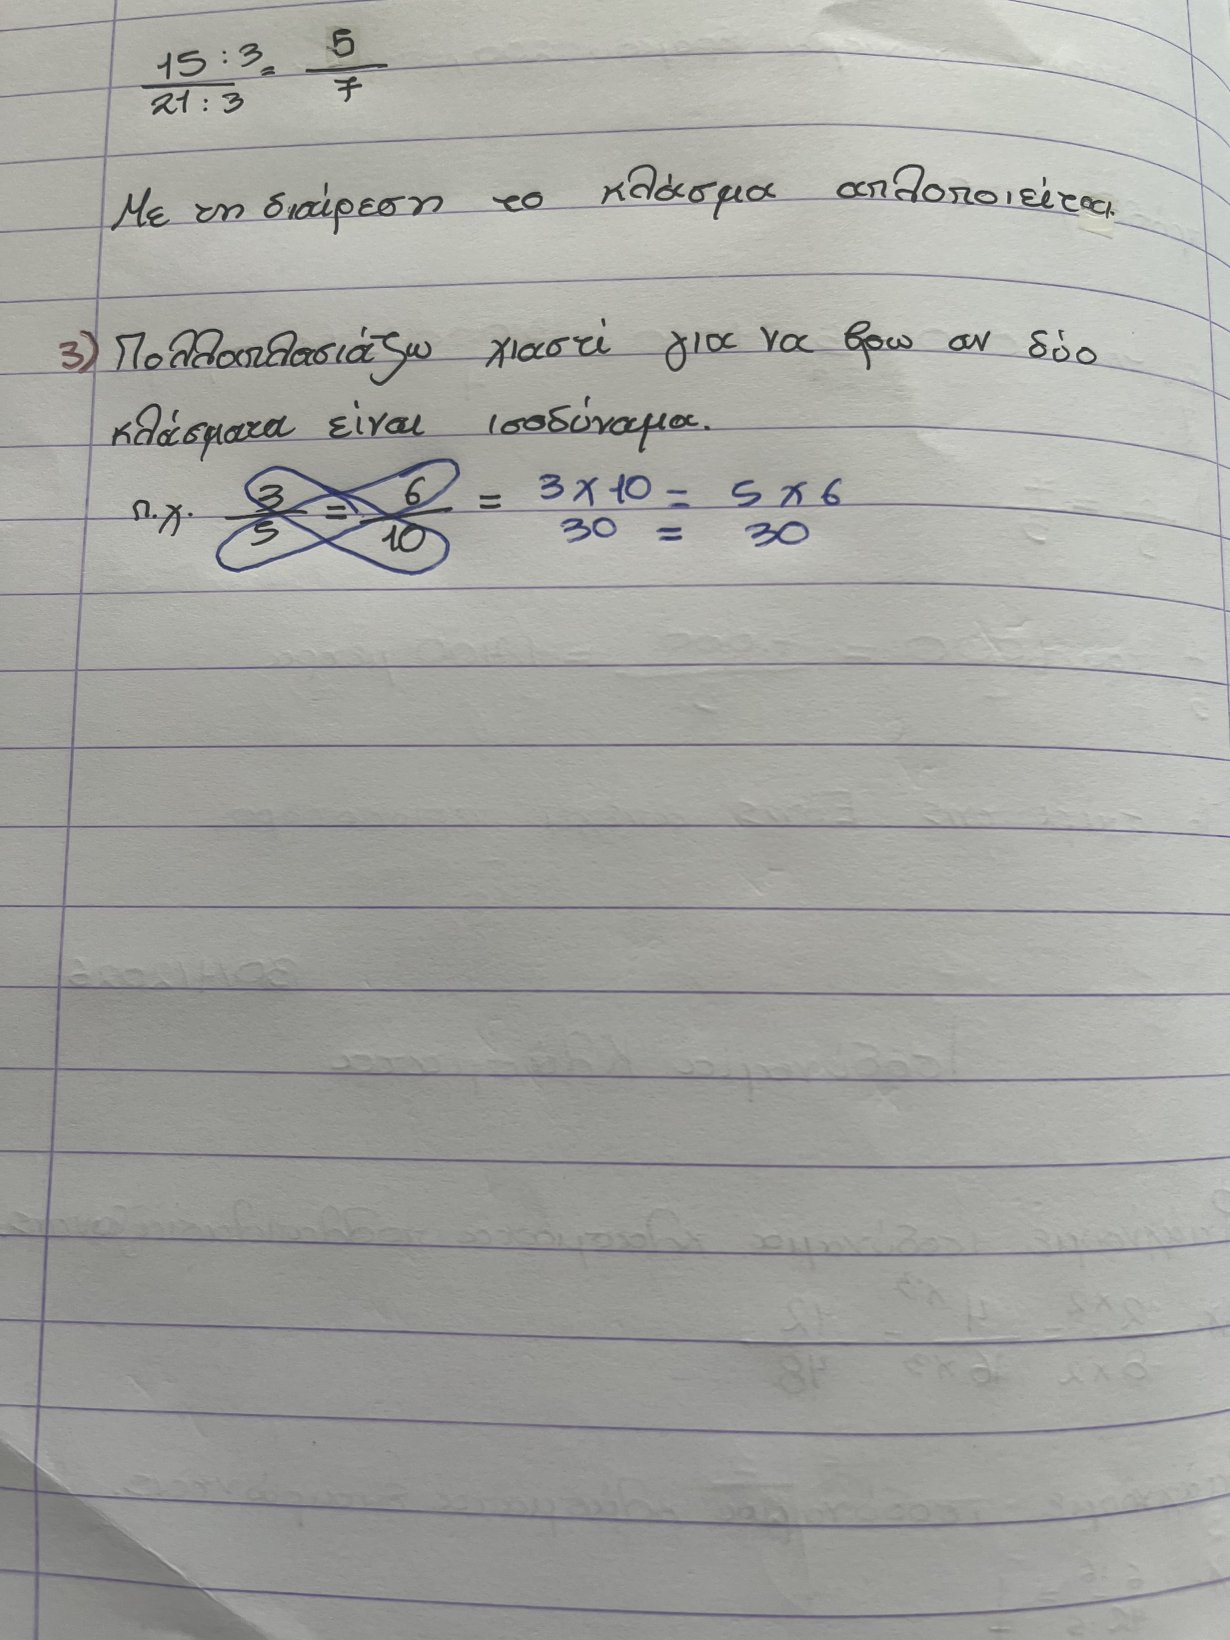 15 : 3 = 5
21 : 3 7
Με τη διαίρεση το κλάσμα απλοποιείται.
3) Πολλαπλασιάζω χιαστί για να βρω αν δύο
κλάσματα είναι ισοδύναμα.
π.χ. 3/5 = 6/10 = 3 x 10 = 5 x 6
30 = 30